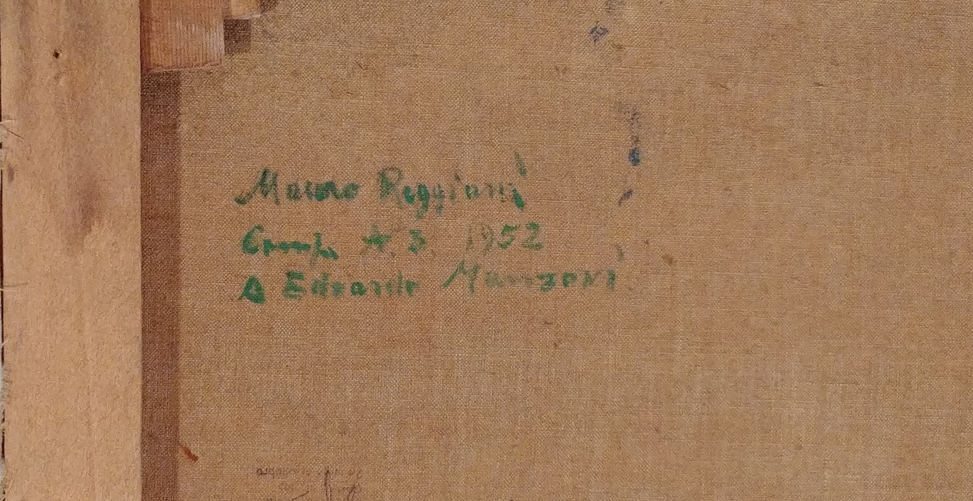 Mauro Reggiani
Comp. A. 3. 1952
A Edoardo Manzoni